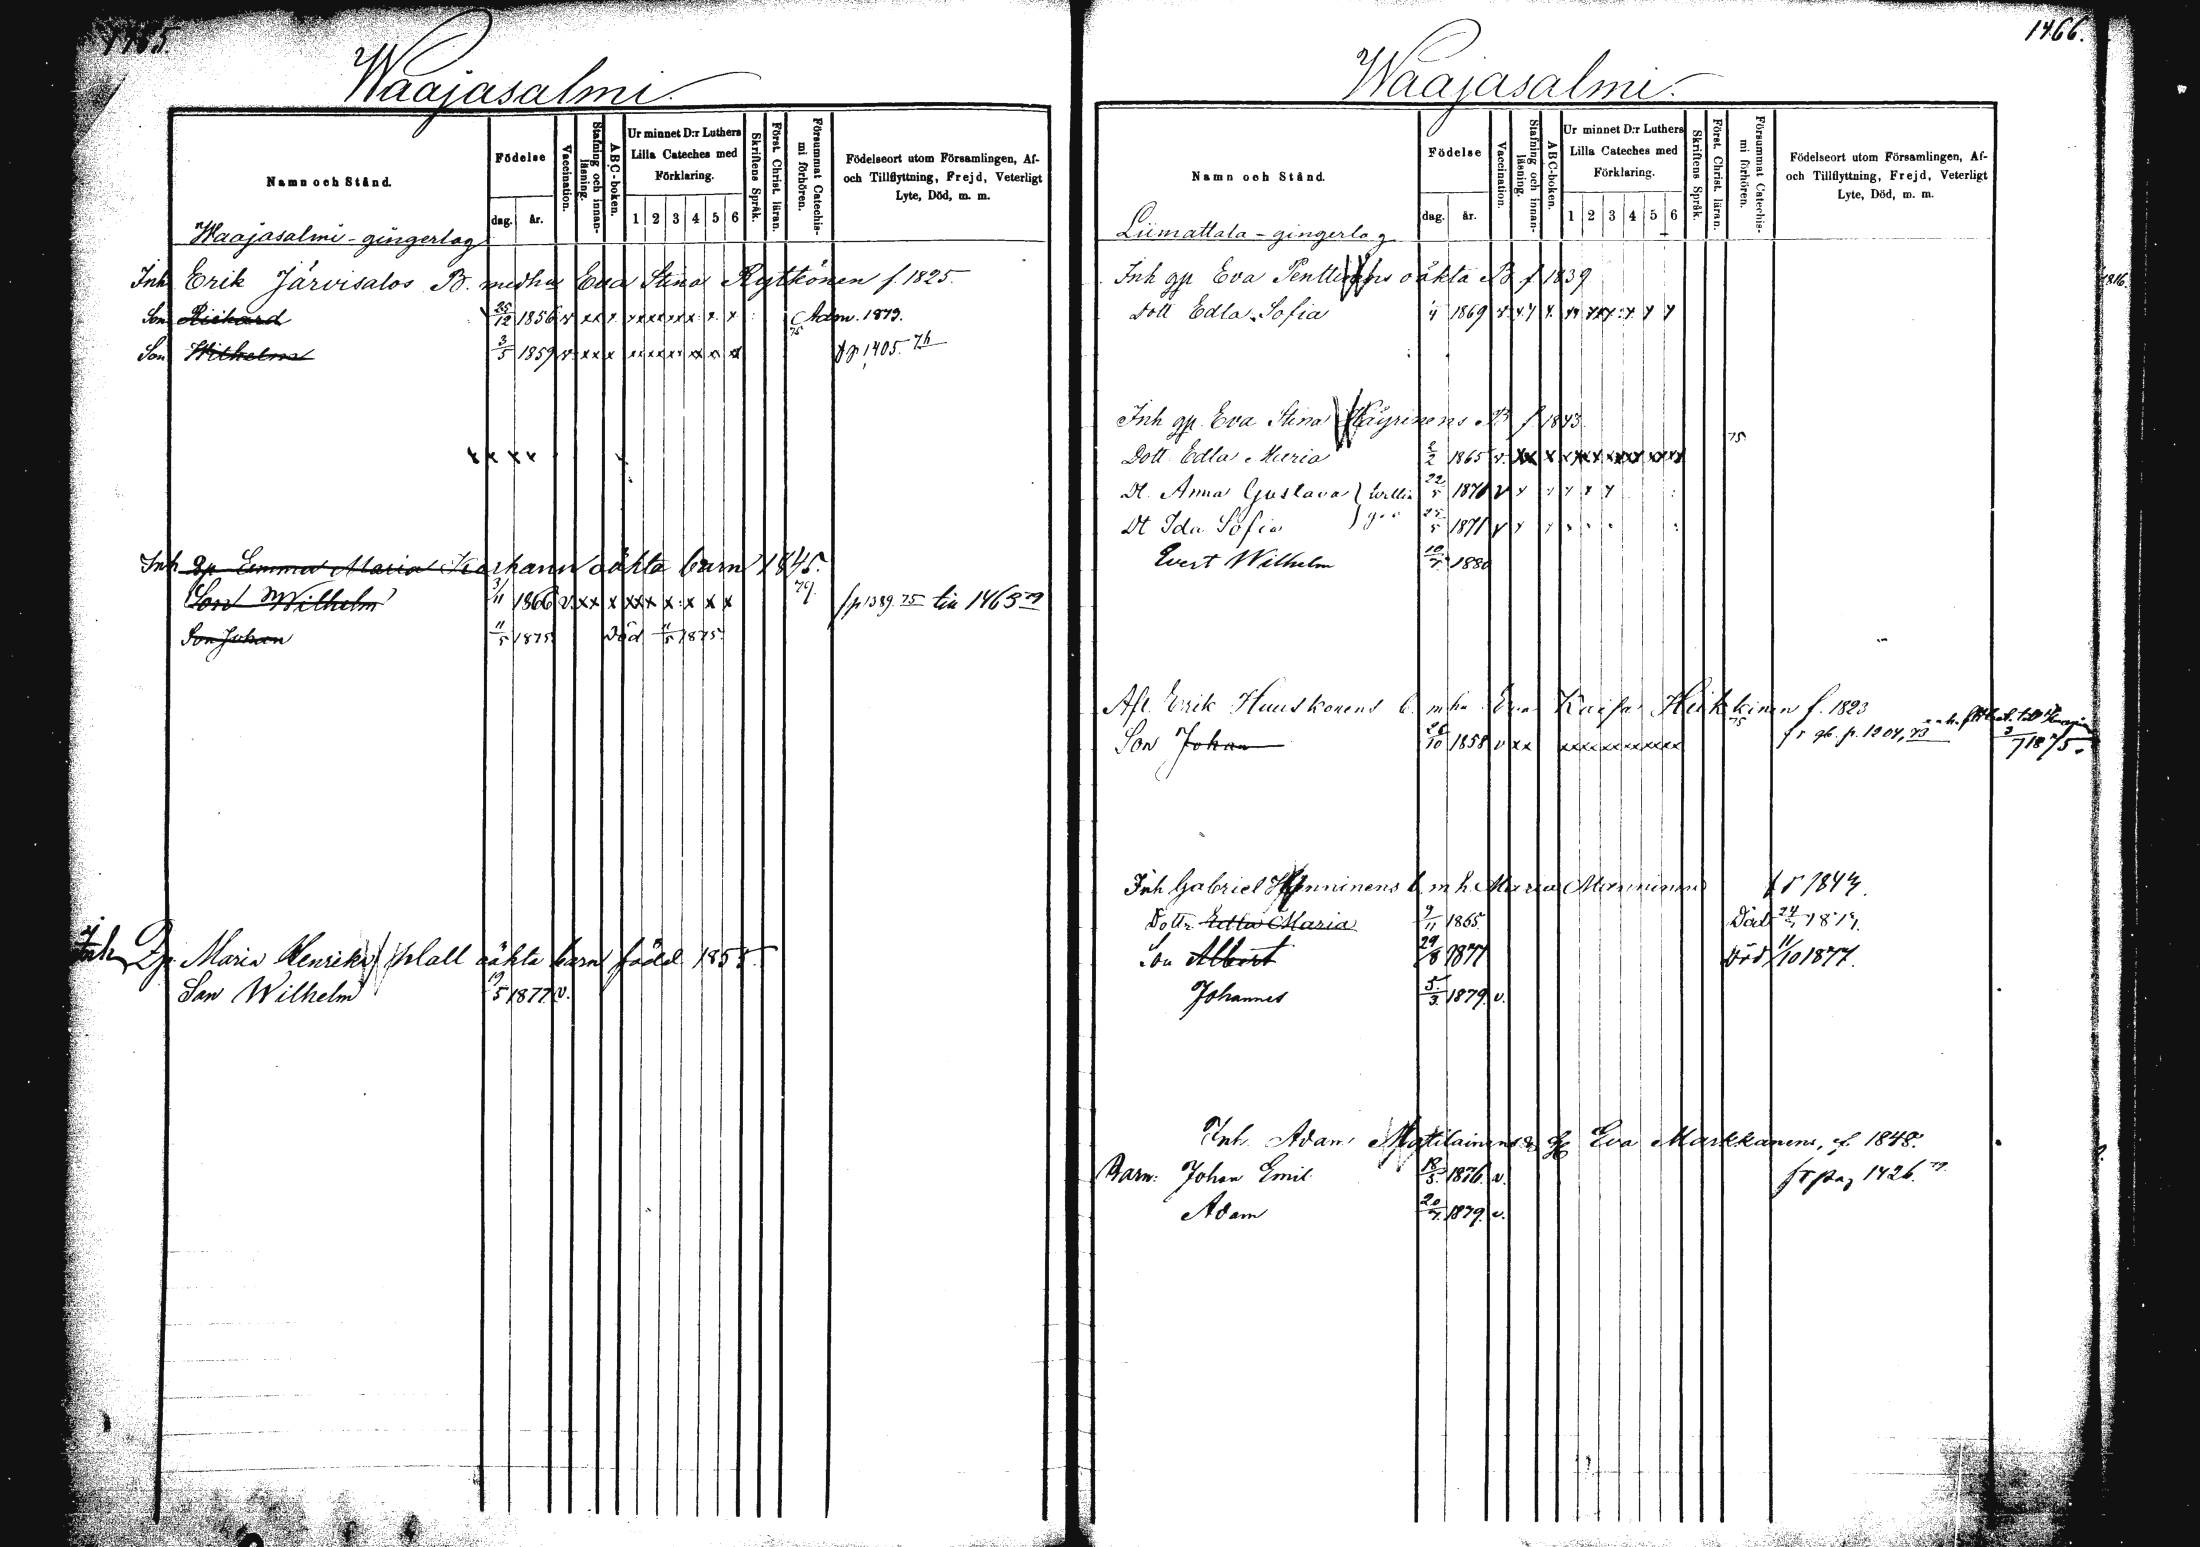 1465.
Waajasalmi.
Namn och Stånd.
Födelse
dag. år.
Vaccination.
Stafning och innanläsning.
ABC-boken.
Ur minnet D:r Luthers Lilla Cateches med Förklaring.
1 2 3 4 5 6
Skriftens Språk.
Först. Christ. läran.
Försummat Catechismi förhören.
Födelseort utom Församlingen, Af- och Tillflyttning, Frejd, Veterligt Lyte, Död, m. m.
Waajasalmi-gingerlag
Inh Erik Järvisalos B. medhu Eva Stina Rytkönen f. 1825.
Son Rickard 25/12 1856 v xx x xxxx xxx x x Adm. 1873.
Son Wilhelm 3/5 1859 v xx x xx xx xx xx x x 75 fr p 1405. 76
x x x x x
Inh gp Emma Maria Karhann oäkta barn 1845.
Son Wilhelm 3/11 1866 v. xx x xxx x x x x 79. fr p 1389 75 till 1463 79
Son Johan 11/5 1875 Död 11/5 1875.
Inh Gp Maria Henrika Hall oäkta barn född 1855
Son Wilhelm 19/5 1877 v.
1466.
Waajasalmi.
Namn och Stånd.
Födelse
dag. år.
Vaccination.
Stafning och innanläsning.
ABC-boken.
Ur minnet D:r Luthers Lilla Cateches med Förklaring.
1 2 3 4 5 6
Skriftens Språk.
Först. Christ. läran.
Försummat Catechismi förhören.
Födelseort utom Församlingen, Af- och Tillflyttning, Frejd, Veterligt Lyte, Död, m. m.
Liimattala-gingerlag
Inh gp Eva Penttinens oäkta B f 1839
Dott Edla Sofia 1/4 1869
Inh gp. Eva Stina Häyrinens B f 1843
75
Dott Edla Maria 2/2 1865 v.
Dt. Anna Gustava 22/5 1871 v
Dt Ida Sofia 25/5 1871 v
Evert Wilhelm 10/7 1880
Afl. Erik Huuskonens b. m hu Eva Kaisa Hiekkinen f. 1823
Son Johan 26/10 1858 v xx 75 fr gb. p. 1904, 73 3/7 1875.
Inh Gabriel Hänninens b. m h. Maria Manninen f 1844.
Dottr Edla Maria 9/11 1865 Död
Son Albert 29/8 1877 Död 11/10 1877.
Johannes 5/3 1879. v.
Inh. Adam Mytilainens & H Eva Markkanens, f. 1848.
Barn: Johan Emil 18/3 1876. v. fr pag 1426. 79.
Adam 20/7 1879. v.